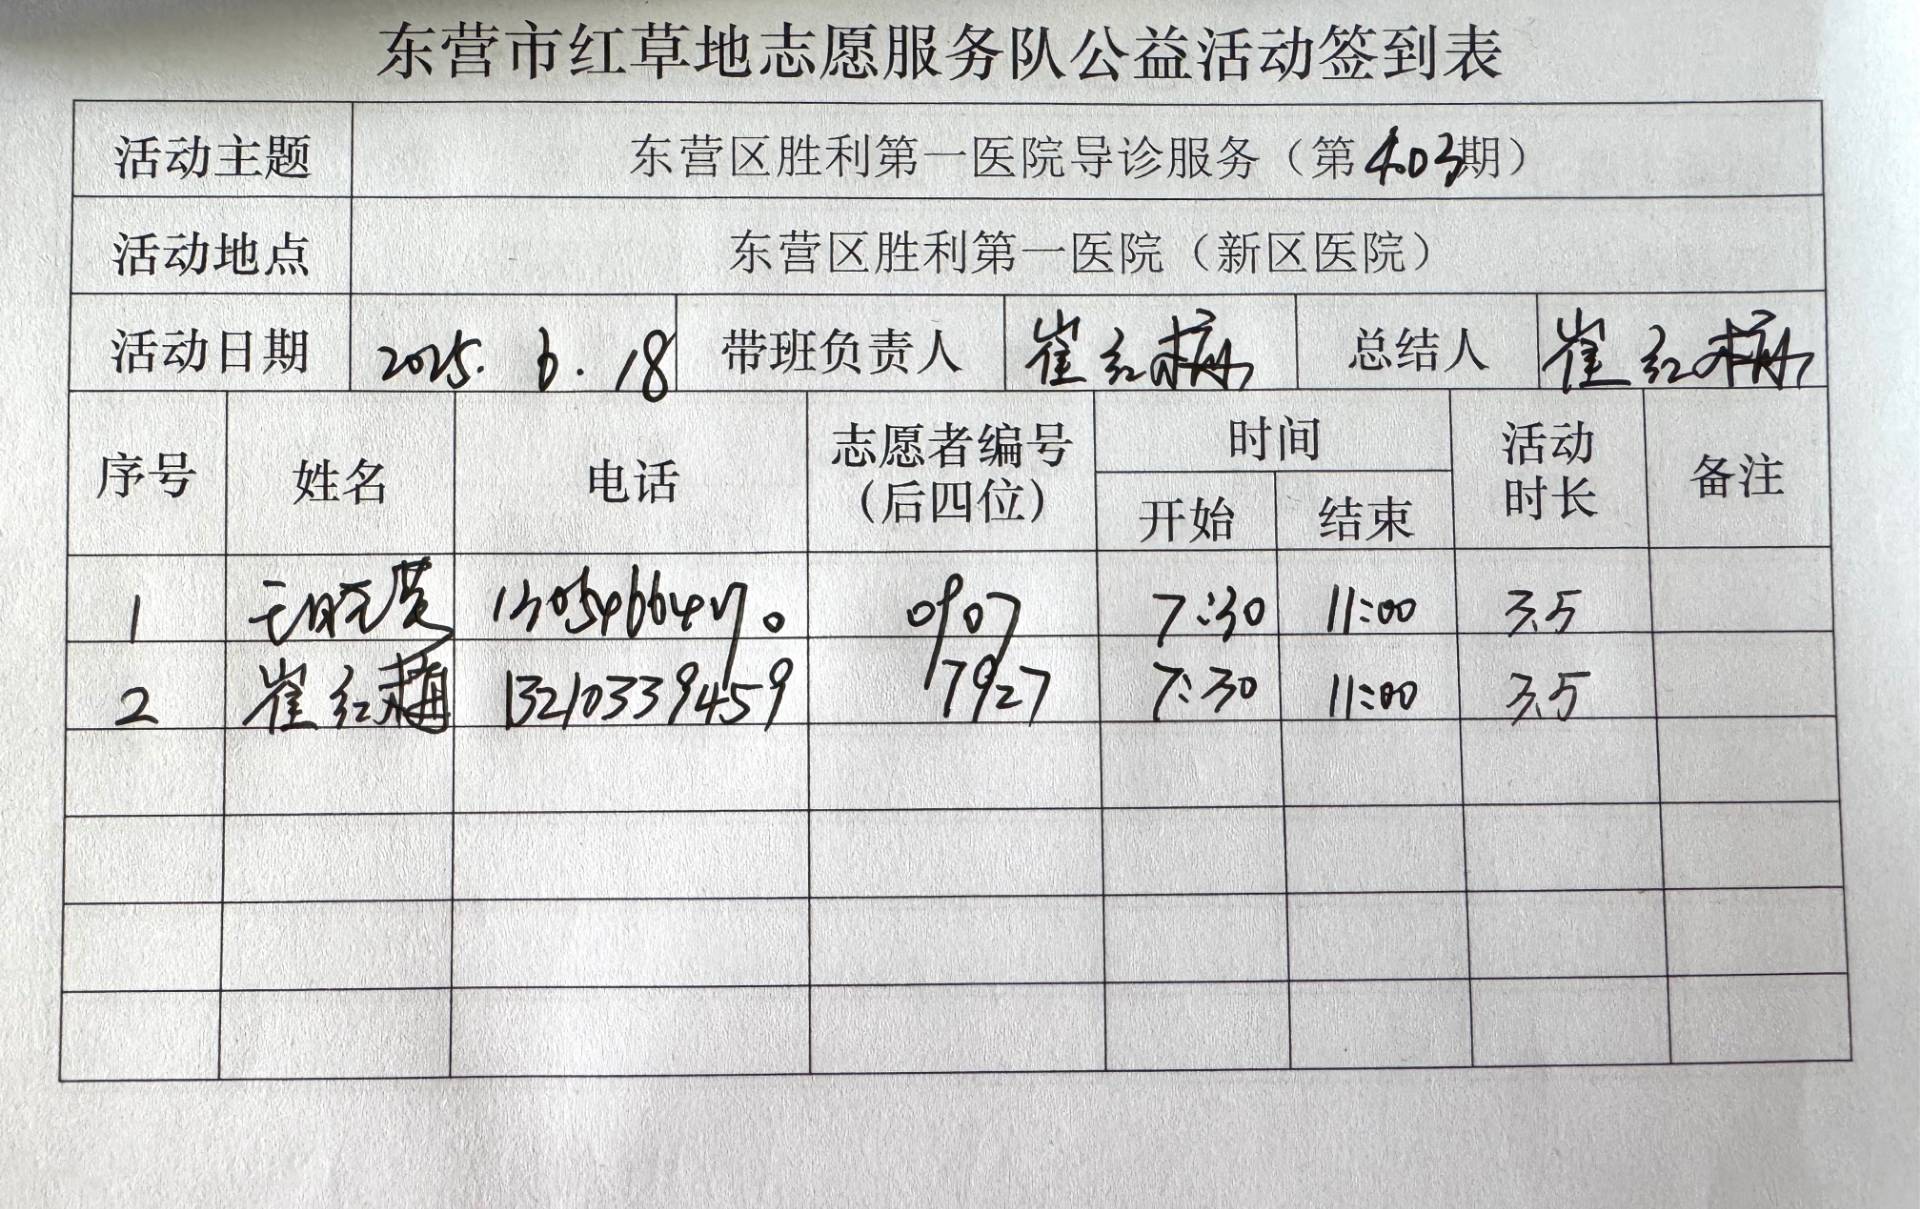 东营市红草地志愿服务队公益活动签到表
活动主题 东营区胜利第一医院导诊服务（第403期）
活动地点 东营区胜利第一医院（新区医院）
活动日期 2025.6.18 带班负责人 崔红梅 总结人 崔红梅
序号 姓名 电话 志愿者编号（后四位） 时间 开始 结束 活动时长 备注
1 王晓英 0907 7:30 11:00 3.5
2 崔红梅 13210339459 7927 7:30 11:00 3.5